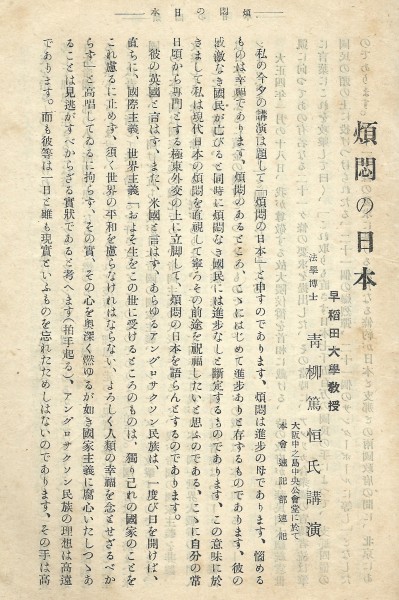 煩悶の日本
煩悶の日本
早稻田大學敎授
法學博士 靑柳篤恒氏講演
大阪中之島中央公會堂に於て
本會速記部速記
私の今夕の講演は題して「煩悶の日本」と申すのであります、煩悶は進歩の母であります、惱める
ものは幸福であります、煩悶のあるところ、こゝにはじめて進歩ありと存するものであります、彼の
感激なき國民が亡びると同時に煩悶なき國民には進歩なしと斷定するものであります、この意味に於
きまして私は現代日本の煩悶を直視して寧ろその前途を祝福したいと思ふのである、こゝに自分の常
日頃から專門とする極東外交の上に立脚して、煩悶の日本を語らんとするのであります。
彼の英國と言はず、また、米國と言はず、あらゆるアングロサクソン民族は、一度び口を開けば、
直ちに、國際主義、世界主義「およそ生をこの世に受けるところのものは、獨り己れの國家のことを
これ慮るに止めず、須く世界の平和を慮らなければならない、よろしく人類の幸福を念とせざるべか
らず」と高唱してゐるに拘らず、その實、その心を奧深く燃ゆるが如き國家主義に腐心いたしつゝあ
ることは見逃がすべからざる實狀であると考へます(拍手起る)、アングロサクソン民族の理想は高遠
であります。而も彼等は一日と雖も現實といふものを忘れたためしはないのであります、その手は高